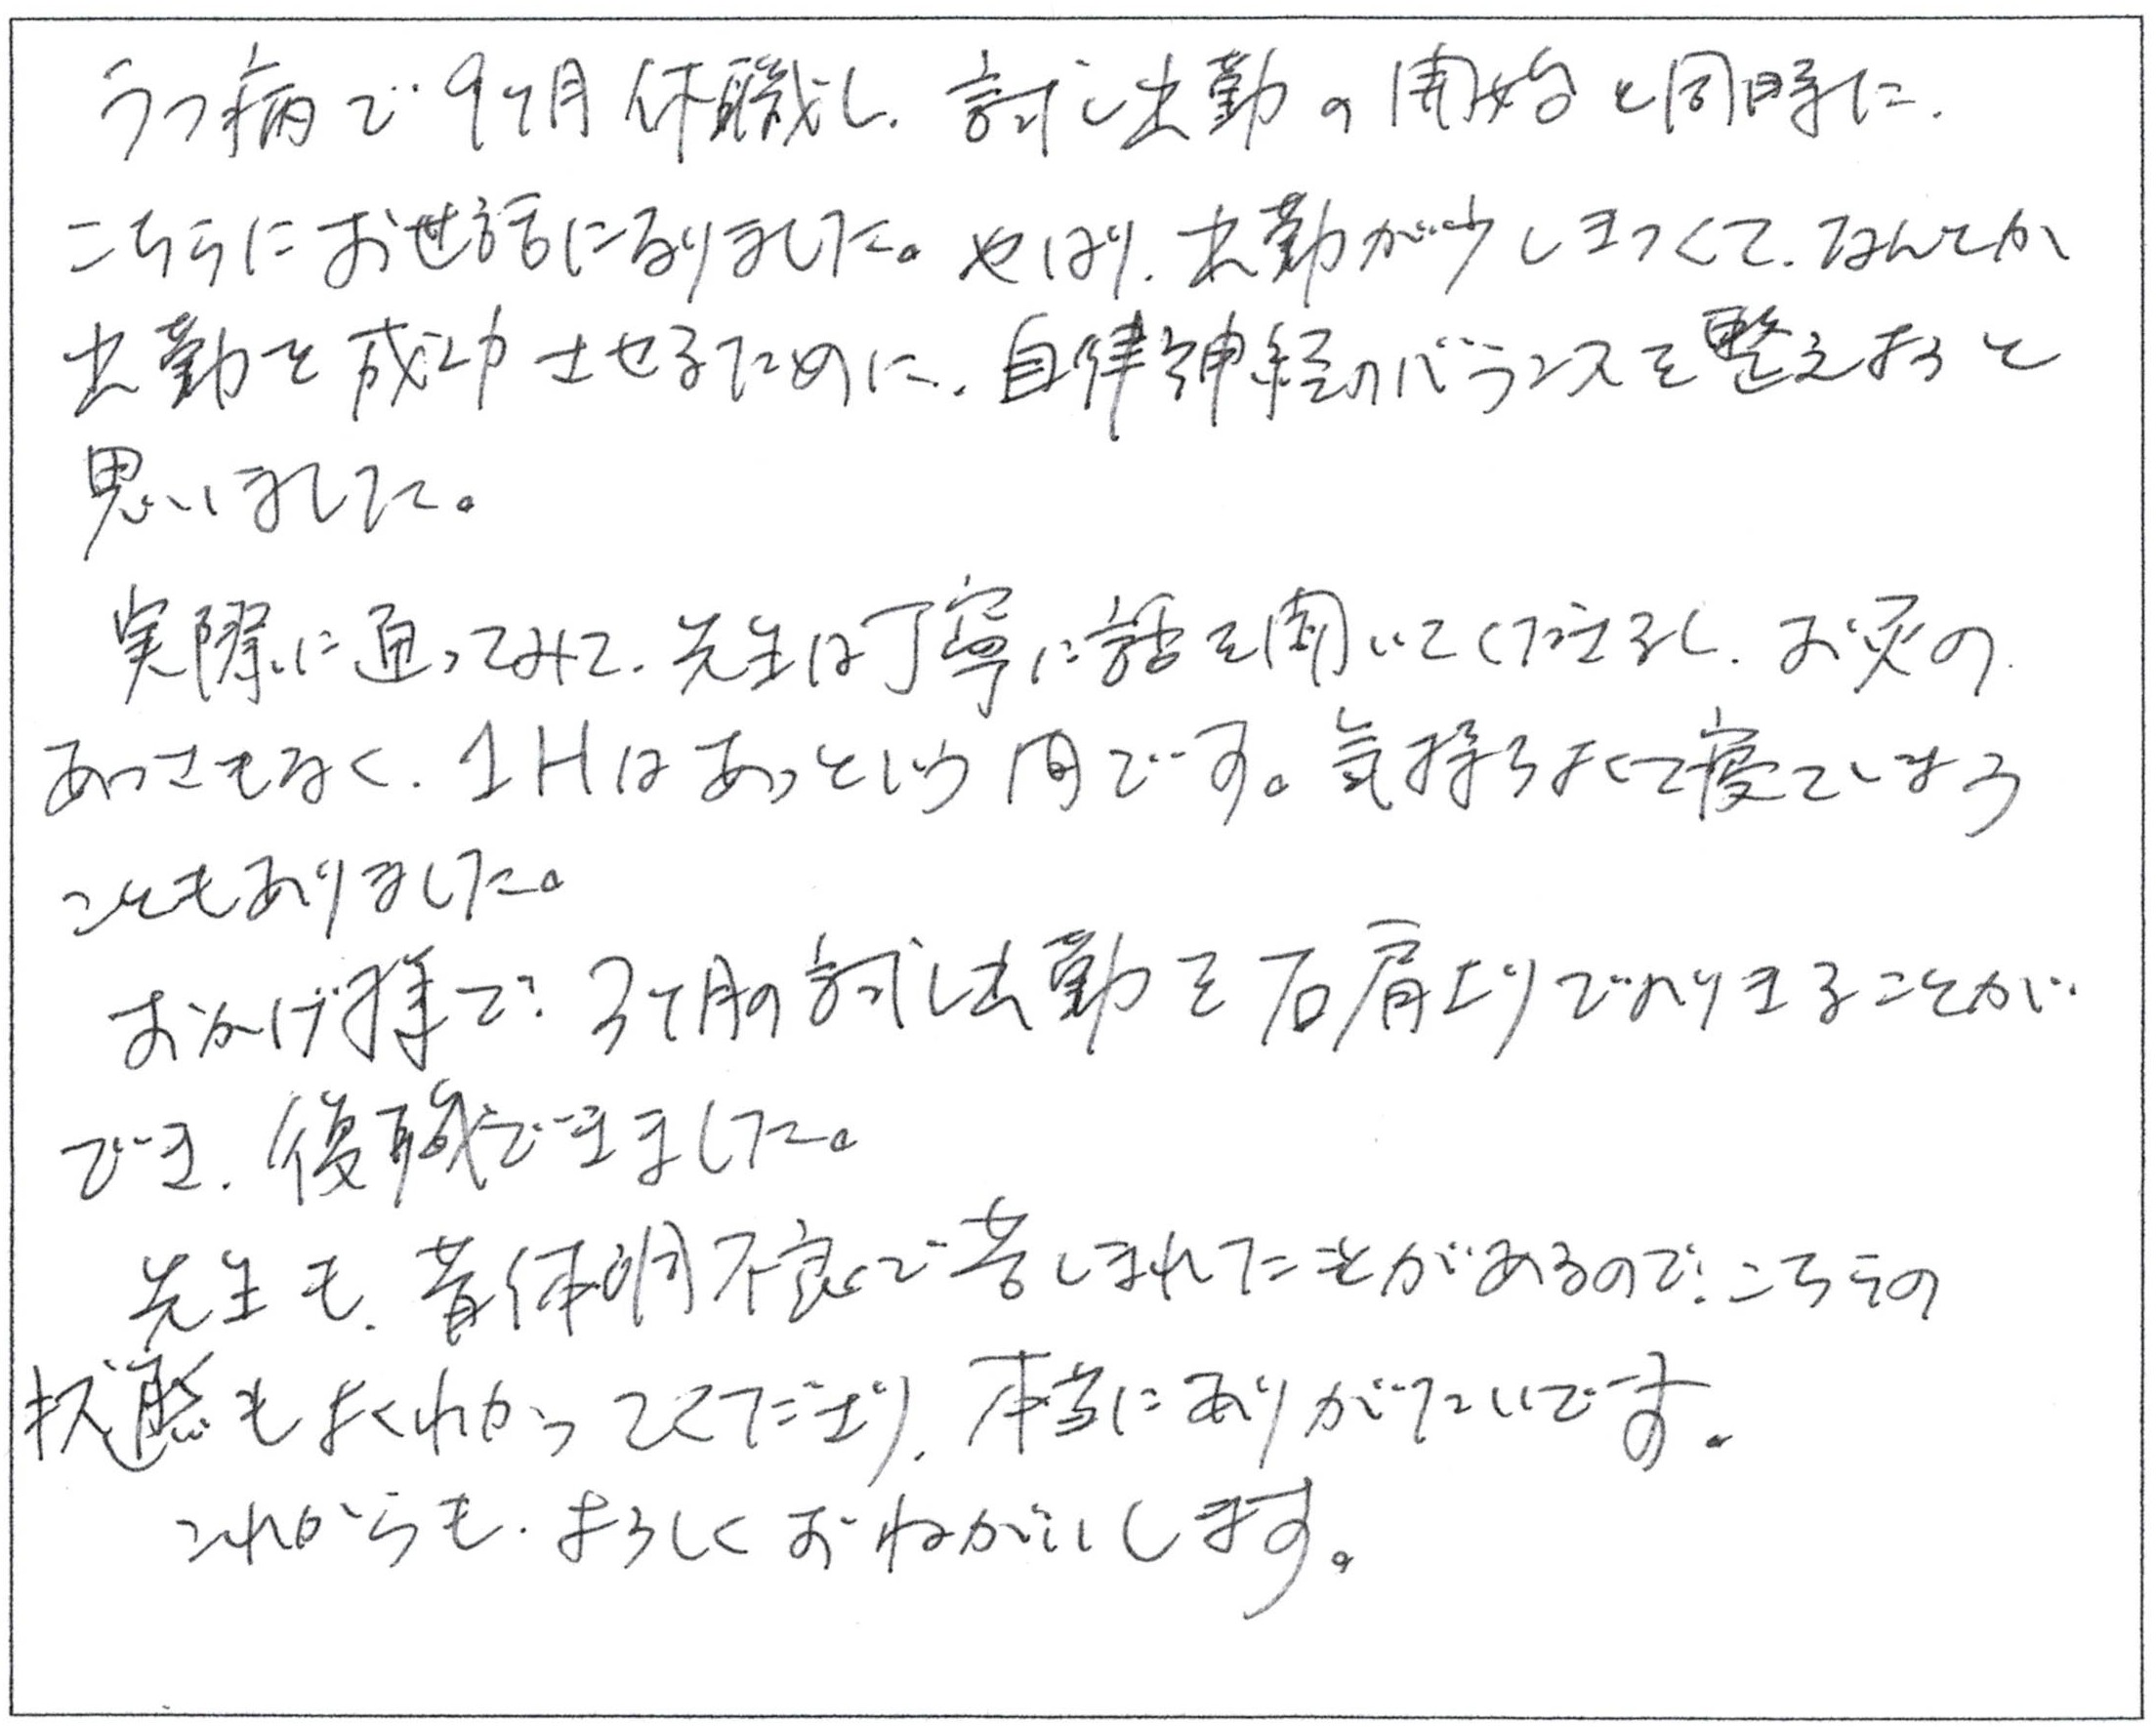 うつ病で9ヶ月休職し、試し出勤の開始と同時に、
こちらにお世話になりました。やはり、出勤が少しきつくて、なんとか
出勤を成功させるために、自律神経のバランスを整えようと
思いました。
実際に通ってみて、先生は丁寧に話を聞いてくださるし、お灸の
あつさもなく、1Hはあっという間です。気持ちよくて寝てしまう
こともありました。
おかげ様で、3ヶ月の試し出勤を右肩上りでのりきることが
でき、復職できました。
先生も、昔体調不良で苦しまれたことがあるので、こちらの
状態もよくわかってくださり、本当にありがたいです。
これからも、よろしくおねがいします。